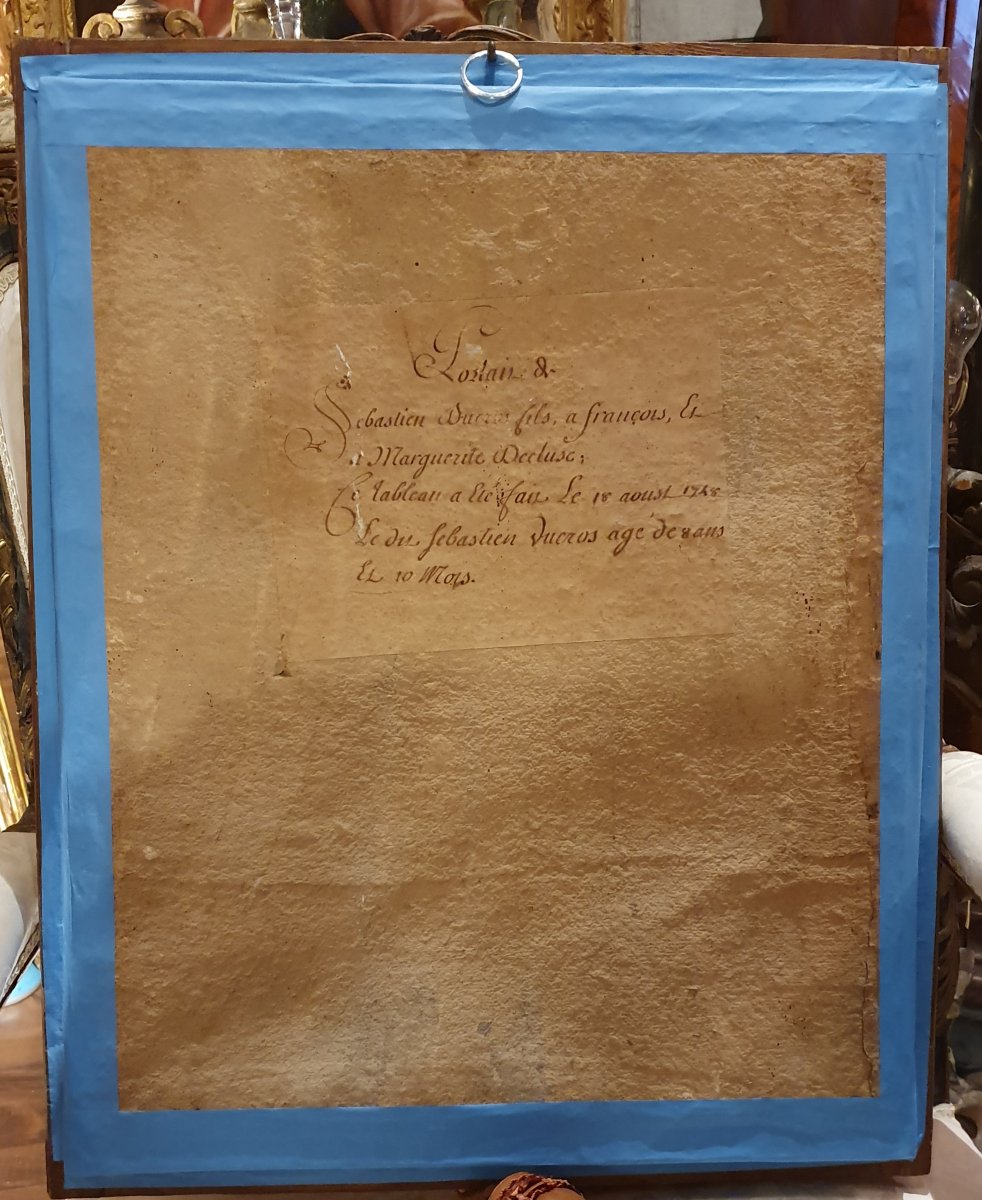 Portait de
Sebastien Ducros fils, a françois, Et
a Marguerite Decluse;
Ce tableau a Ete fait Le 18 aoust 1748
Le dit Sebastien Ducros age de 8 ans
Et 10 Mois.